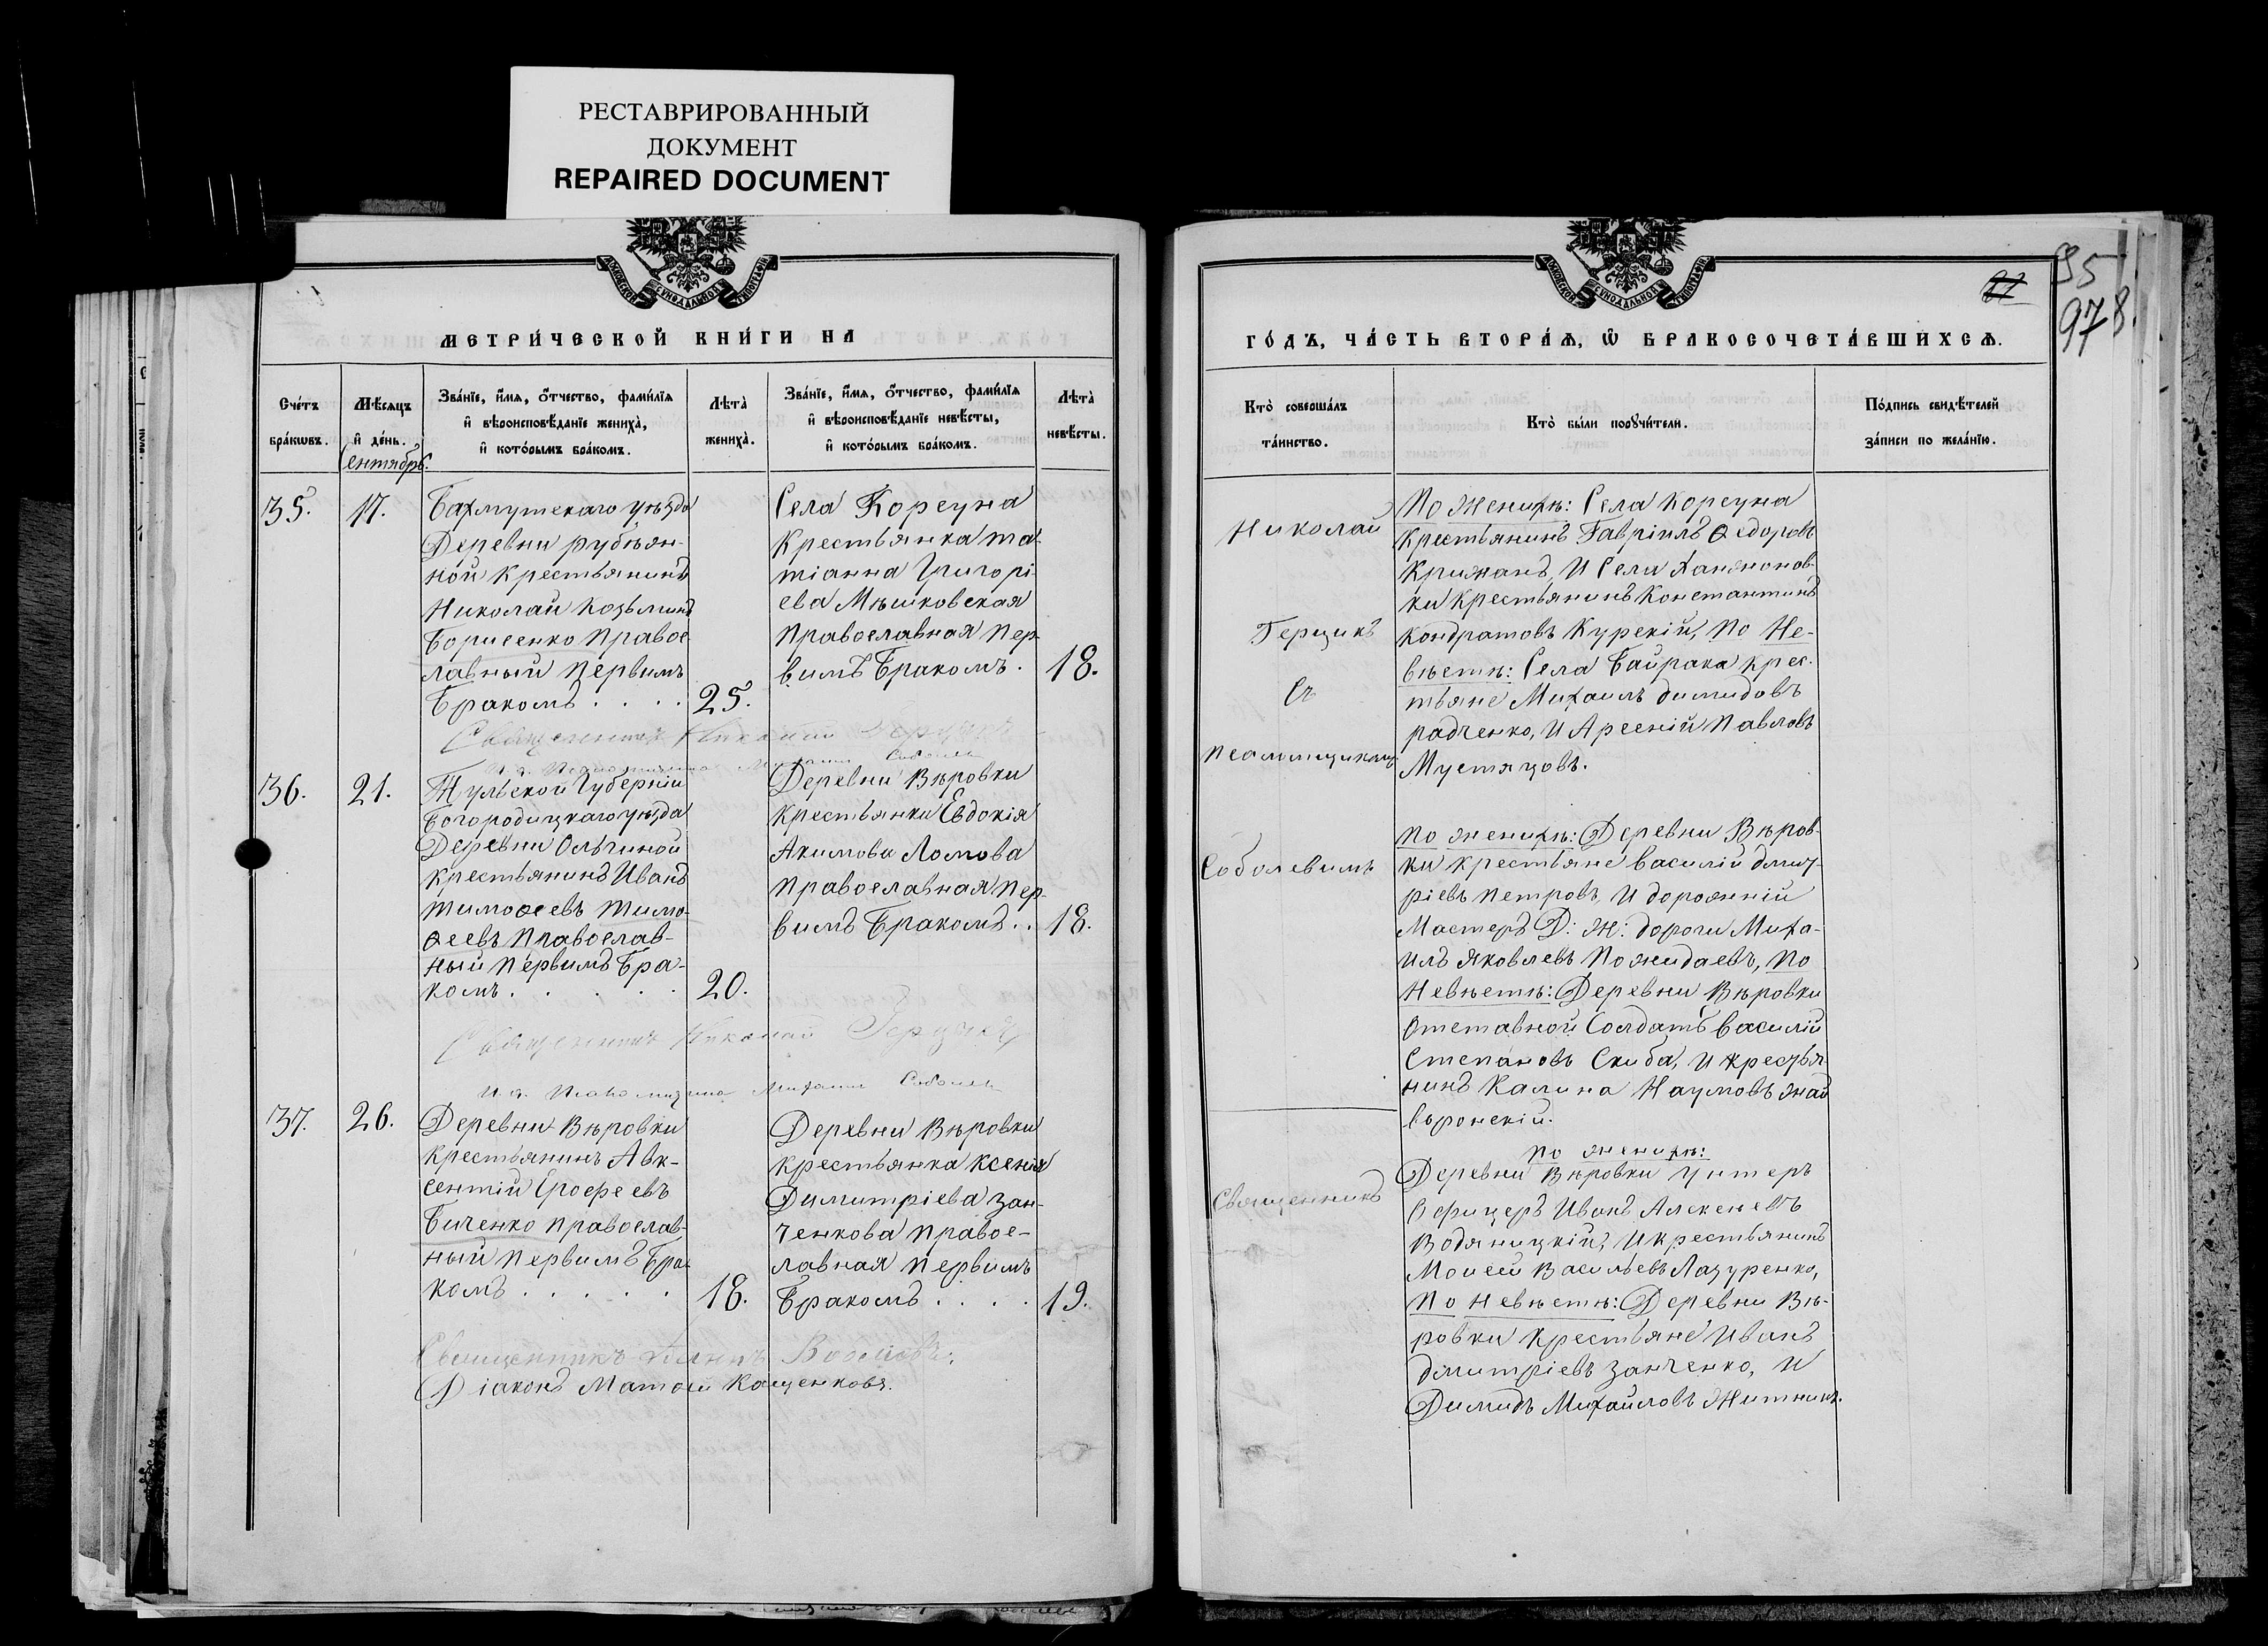 РЕСТАВРИРОВАННЫЙ
ДОКУМЕНТ
REPAIRED DOCUMENT
МЕТРИ́ЧЕСКОЙ КНИ́ГИ НА
Сче́тъ бра́кωвъ.
Мѣ́сяцъ и҆ де́нь.
Сентябрь.
Зва́нїе, и҆́мѧ, ѻ҆́тчество, фами́лїѧ
и҆ вѣроисповѣ́данїе жениха̀,
и҆ кото́рымъ бра́комъ.
Лѣта̀ жениха̀.
Зва́нїе, и҆́мѧ, ѻ҆́тчество, фами́лїѧ
и҆ вѣроисповѣ́данїе невѣ́сты,
и҆ кото́рымъ бра́комъ.
Лѣта̀ невѣ́сты.
35.
17.
Бахмутскаго уѣзда
Деревни рубѣжан-
ной крестьянинъ
Николай Козьминъ
Борисенко Правос
лавный Первымъ
Бракомъ . . . .
25.
Села Корсуна
Крестьянка та
тіанна Григорі-
ева Мѣшковская
Православная Пер-
вимъ Бракомъ.
18.
Священникъ Николай Герцикъ
Соболев
36.
21.
Тульской Губерніи
Богородицкаго уѣзда
Деревни Ольгиной
крестьянинъ Иванъ
Тимоѳеевъ Тимо-
ѳеевъ Православ-
ный Первимъ Бра-
комъ . . . . .
20.
Деревни Вѣровки
Крестьянки Евдокія
Акимова Ломова
Православная Пер-
вимъ Бракомъ . .
18.
Священникъ Николай Герцикъ
И. д. Псаломщика Михаилъ Соболев
37.
26.
Деревни Вѣровки
крестьянинъ Авк-
сентій Ерофеевъ
Биченко Православ-
ный Первимъ Бра
комъ . . . . .
18.
Деревни Вѣровки
крестьянка Ксенія
Димитріева Зан-
ченкова Правос-
лавная Первимъ
Бракомъ . . . .
19.
Священникъ
Діаконъ Матѳей Кащенковъ.
ГО́ДЪ, ЧА́СТЬ ВТОРА́Ѧ, Ѿ БРАКОСОЧЕТА́ВШИХСѦ.
95
978.
Кто̀ соверша́лъ та́инство.
Кто̀ бы́ли порꙋчи́тели.
По́дпись свидѣ́телей
за́писи по жела́нїю.
Николай
Герцикъ
Съ
псаломщикомъ
Соболевимъ
Священникъ
По женихѣ: Села Корсуна
Крестьянинъ Гавріилъ Ѳедоровъ
Крижанъ, И Села Ханжонов-
ки крестьянинъ Константинъ
Кондратовъ Курскій, По Не-
вѣстѣ: Села Байрака крес-
тьяне Михаилъ димидовъ
радченко, И Арсеній Павловъ
Мустяцовъ.
По женихѣ: Деревни Вѣров-
ки крестьяне василій дмит-
ріевъ Петровъ, И дорожній
Мастеръ Д: Ж: дороги Миха-
илъ Яковлевъ Пожидаевъ, По
Невѣстѣ: Деревни Вѣровки
Отставной Солдатъ Василій
Степановъ Скиба, И крестья
нинъ Калина Наумовъ Жад
Деревни Вѣровки
По женихѣ:
Унтеръ
Офицеръ Иванъ Алексѣевъ
Водяницкій, И крестьянинъ
Моисей Васильевъ Лазуренко,
По Невѣстѣ: Деревни Вѣ-
ровки крестьяне Иванъ
дмитріевъ Занченко, И
Димидъ Михайловъ Житникъ.